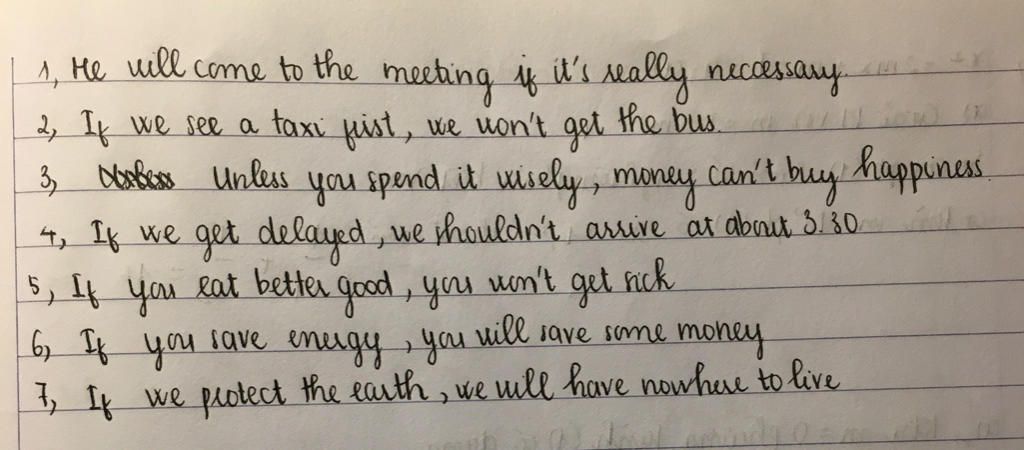 1, He will come to the meeting if it's really neccessary.
2, If we see a taxi fist, we won't get the bus.
3, Unless you spend it wisely, money can't buy happiness.
4, If we get delayed, we shouldn't arrive at about 3.30
5, If you eat better good, you won't get sick
6, If you save energy, you will save some money
7, If we protect the earth, we will have nowhere to live